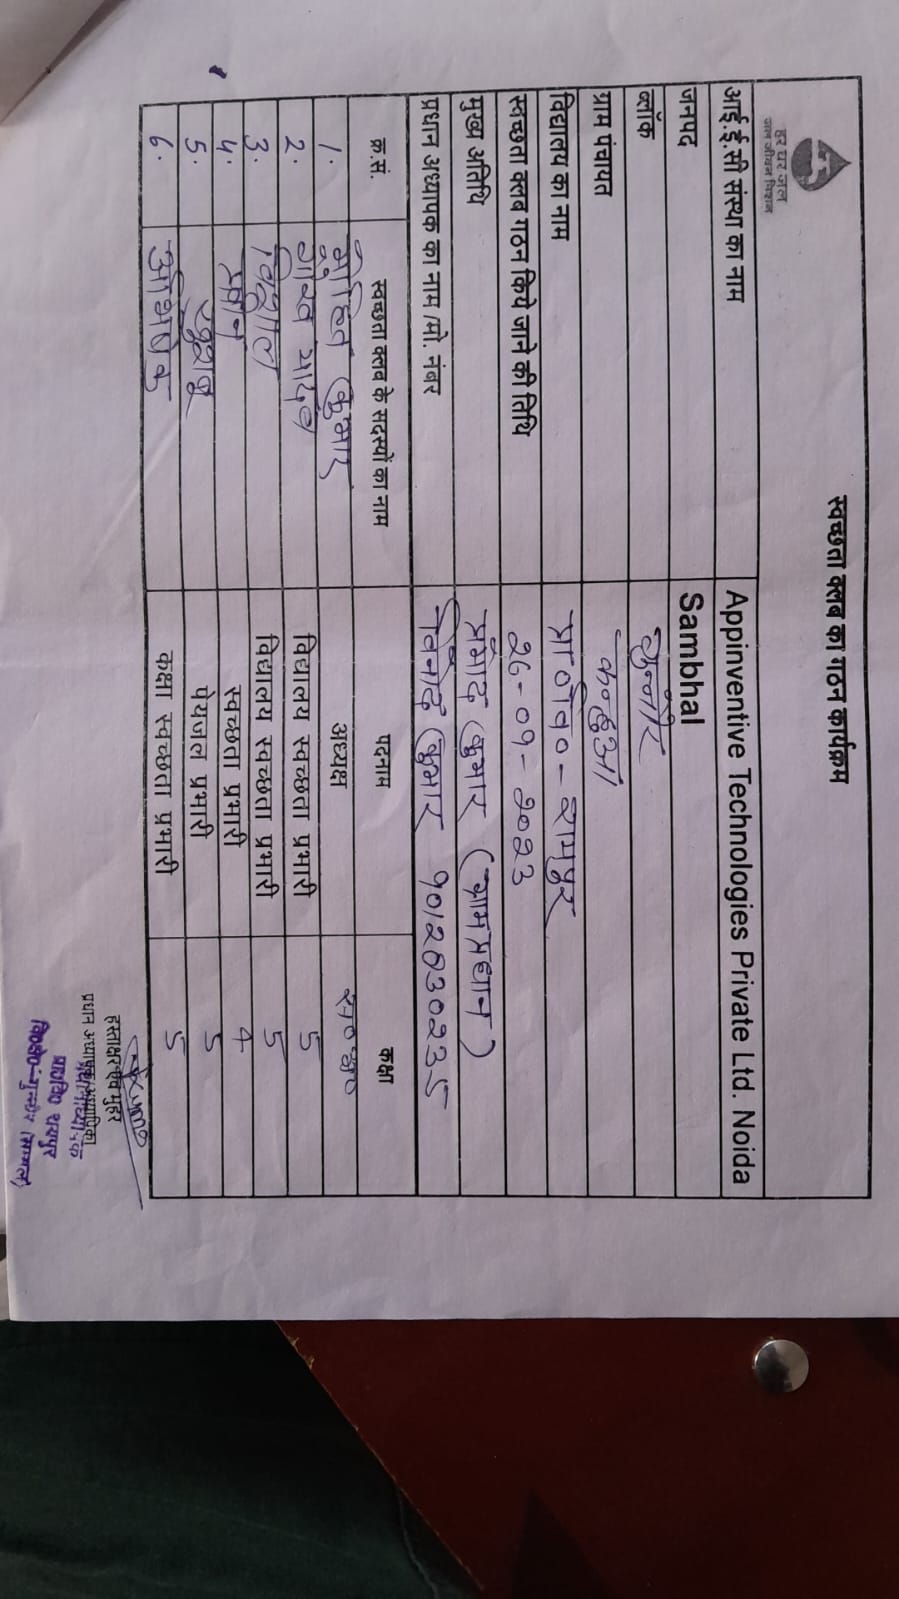 स्वच्छता क्लब का गठन कार्यक्रम
हर घर जल
जल जीवन मिशन
आई.ई.सी संस्था का नाम Appinventive Technologies Private Ltd. Noida
जनपद Sambhal
ब्लॉक जुन्नौर
ग्राम पंचायत कन्हुआ
विद्यालय का नाम प्रा०वि० - रामपुर
स्वच्छता क्लब गठन किये जाने की तिथि 26-09-2023
मुख्य अतिथि प्रमोद कुमार (ग्राम प्रधान)
प्रधान अध्यापक का नाम/मो. नंबर विनोद कुमार
क्र.सं. स्वच्छता क्लब के सदस्यों का नाम पदनाम कक्षा
1. मोहित कुमार अध्यक्ष स०अ०
2. गौरव यादव विद्यालय स्वच्छता प्रभारी 5
3. विशाल विद्यालय स्वच्छता प्रभारी 5
4. स्वच्छता प्रभारी 4
5. खुशबू पेयजल प्रभारी 5
6. अभिषेक कक्षा स्वच्छता प्रभारी 5
हस्ताक्षर एवं मुहर